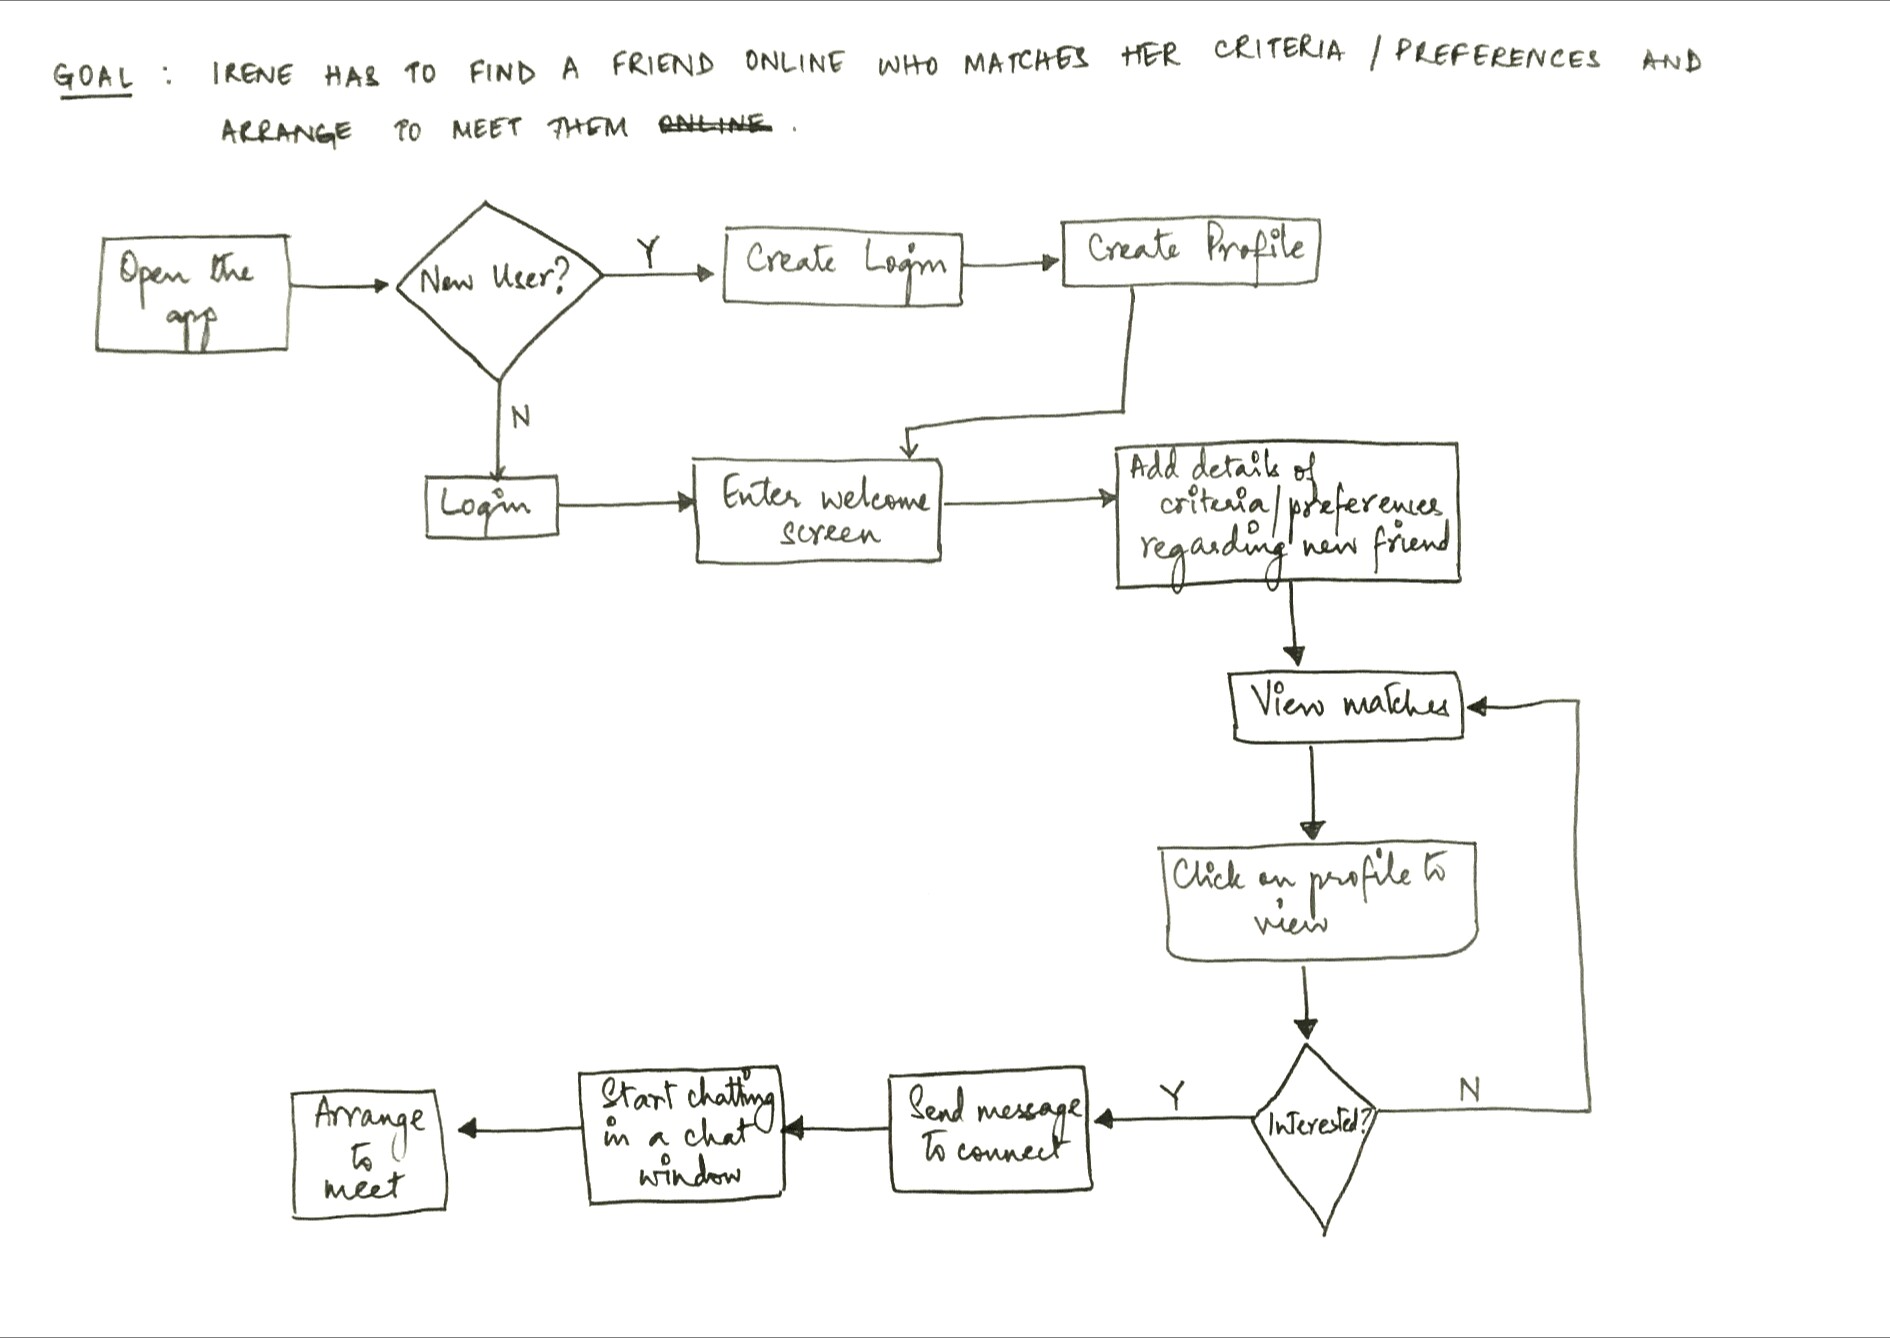 GOAL : IRENE HAS TO FIND A FRIEND ONLINE WHO MATCHES HER CRITERIA / PREFERENCES AND
ARRANGE TO MEET THEM ONLINE .
Open the
app
New User?
Y
Create Login
Create Profile
N
Login
Enter welcome
screen
Add details of
criteria/preferences
regarding new friend
View matches
Click on profile to
view
Interested?
N
Y
Send message
to connect
Start chatting
in a chat
window
Arrange
to
meet